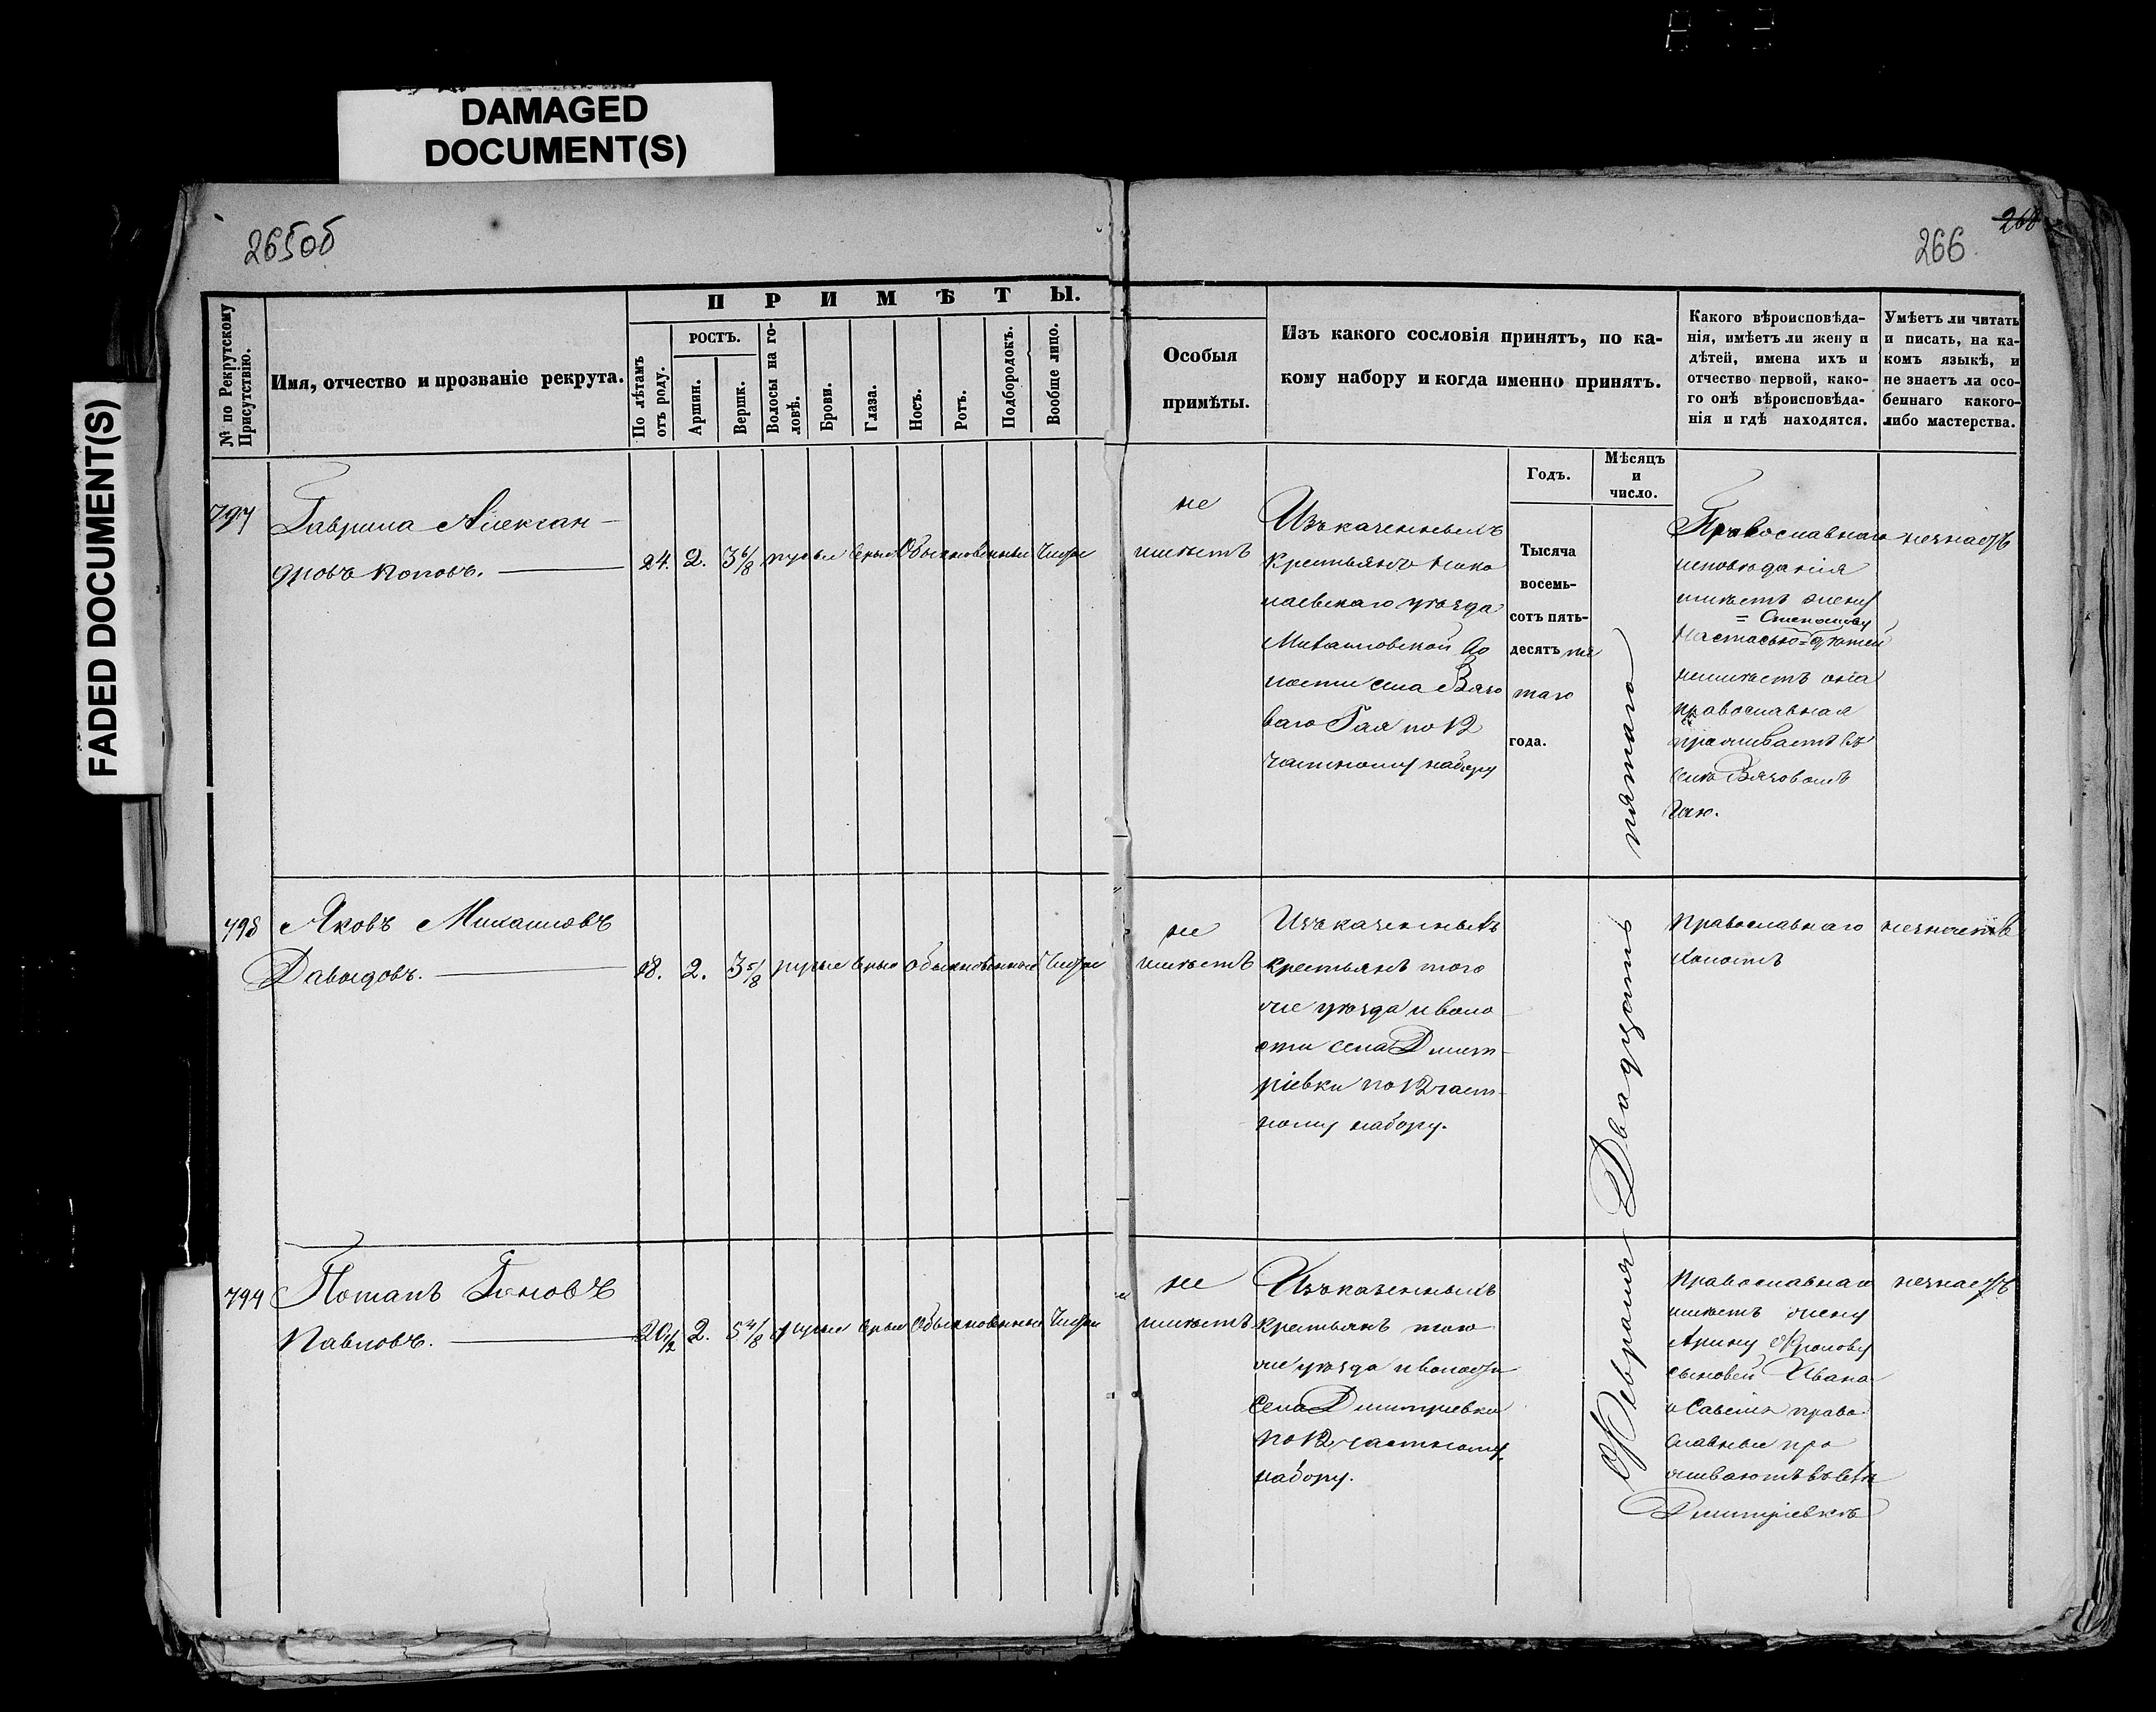 DAMAGED
DOCUMENT(S)
FADED DOCUMENT(S)
265об
268
266.
№ по Рекрутскому
Присутствію.
Имя, отчество и прозваніе рекрута.
ПРИМѢТЫ.
По лѣтамъ
отъ роду.
РОСТЪ.
Аршин.
Вершк.
Волосы на го-
ловѣ.
Брови.
Глаза.
Носъ.
Ротъ.
Подбородокъ.
Вообще лицо.
Особыя
примѣты.
Изъ какого сословія принятъ, по ка-
кому набору и когда именно принятъ.
Какого вѣроисповѣда-
нія, имѣетъ ли жену и
дѣтей, имена ихъ и
отчество первой, како-
го онѣ вѣроисповѣда-
нія и гдѣ находятся.
Умѣетъ ли читать
и писать, на ка-
комъ языкѣ, и
не знаетъ ли осо-
беннаго какого-
либо мастерства.
Годъ.
Мѣсяцъ
и
число.
797
Гаврила Алексан-
дровъ Поповъ.
24. 2. 3 6/8 русые серые Обыкновенные Чистое
не
имѣетъ
Изъ казенныхъ
крестьянъ Нико
лаевскаго уѣзда
Михайловской во
лости села Вязо
ваго Гая по 12
частному набору
Тысяча
восемь-
сотъ пять-
десятъ пя
таго
года.
Февраля Двадцать пятаго
Православнаго
исповѣданія
имѣетъ жену
= Степанову
Настасью = дѣтей
неимѣетъ она
православная
проживаетъ въ
селѣ Вязовомъ
Гаю.
незнаетъ
798
Яковъ Михайловъ
Давыдовъ.
18. 2. 3 5/8 русые серые обыкновенные Чистое
не
имѣетъ
Изъ казенныхъ
крестьянъ того
же уѣзда и воло
сти села Дмит-
ріевки по 12 част-
ному набору.
Православнаго
холостъ
незнаетъ
799
Потапъ
Павловъ.
20 1/2 2. 5 4/8 русые серые Обыкновенные Чистое
не
имѣетъ
Изъ казенныхъ
крестьянъ того
же уѣзда и волости
Села Дмитріевки
по 12 частному
набору.
Православнаго
имѣетъ жену
Арину Фролову
сыновей Ивана
и Савелія право
славные про
живаютъ въ селѣ
Дмитріевкѣ
незнаетъ